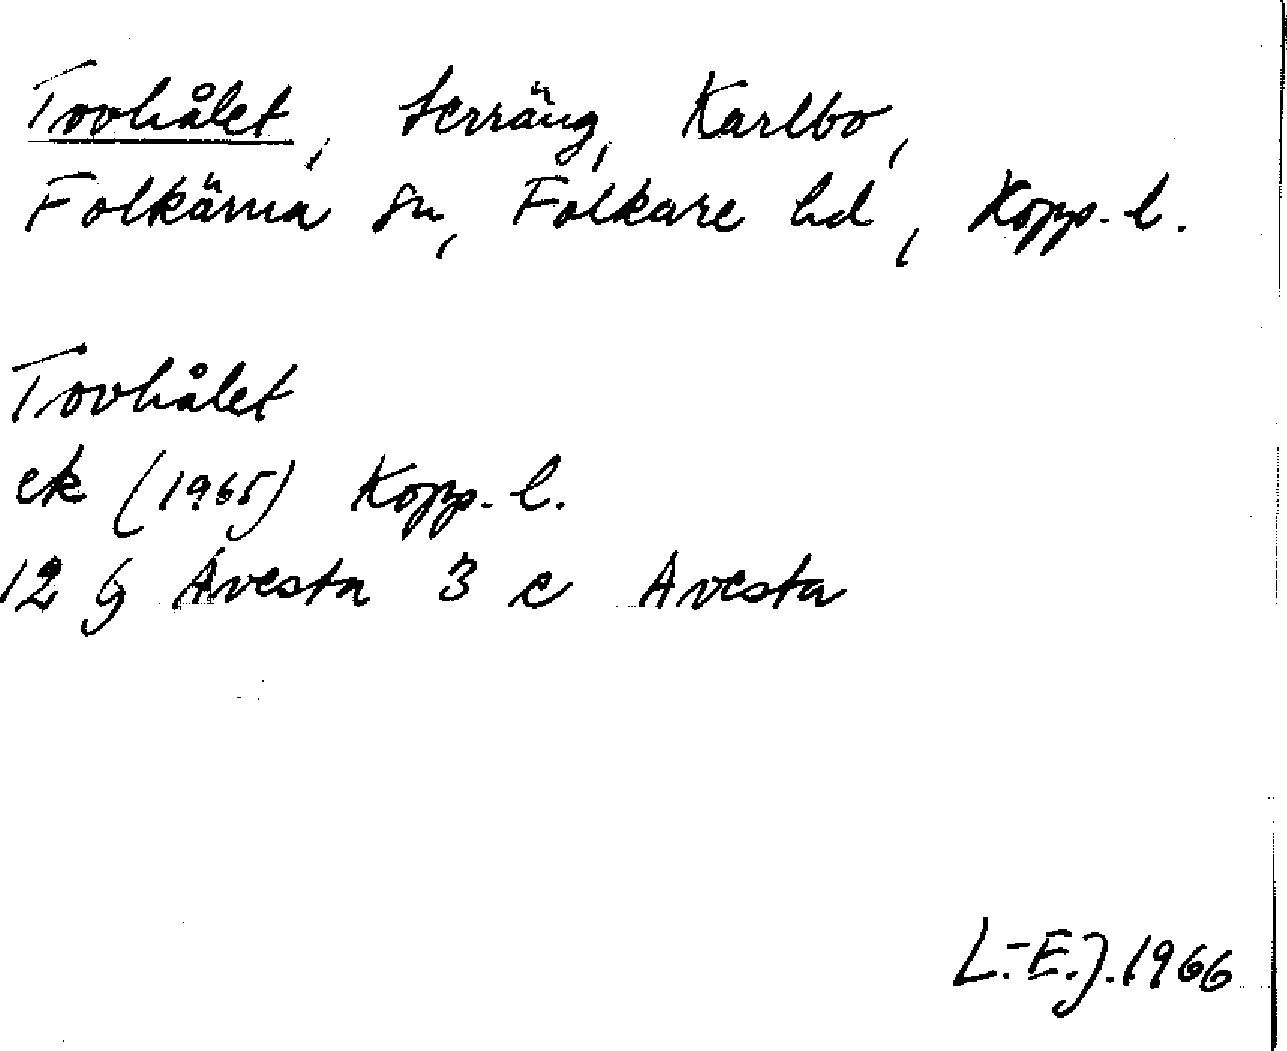 Tovhålet, terräng, Karlbo,
Folkärna sn, Folkare hd, Kopp. l.
Tovhålet
ek (1965) Kopp. l.
12 G Avesta 3 c Avesta
L.-E.J. 1966